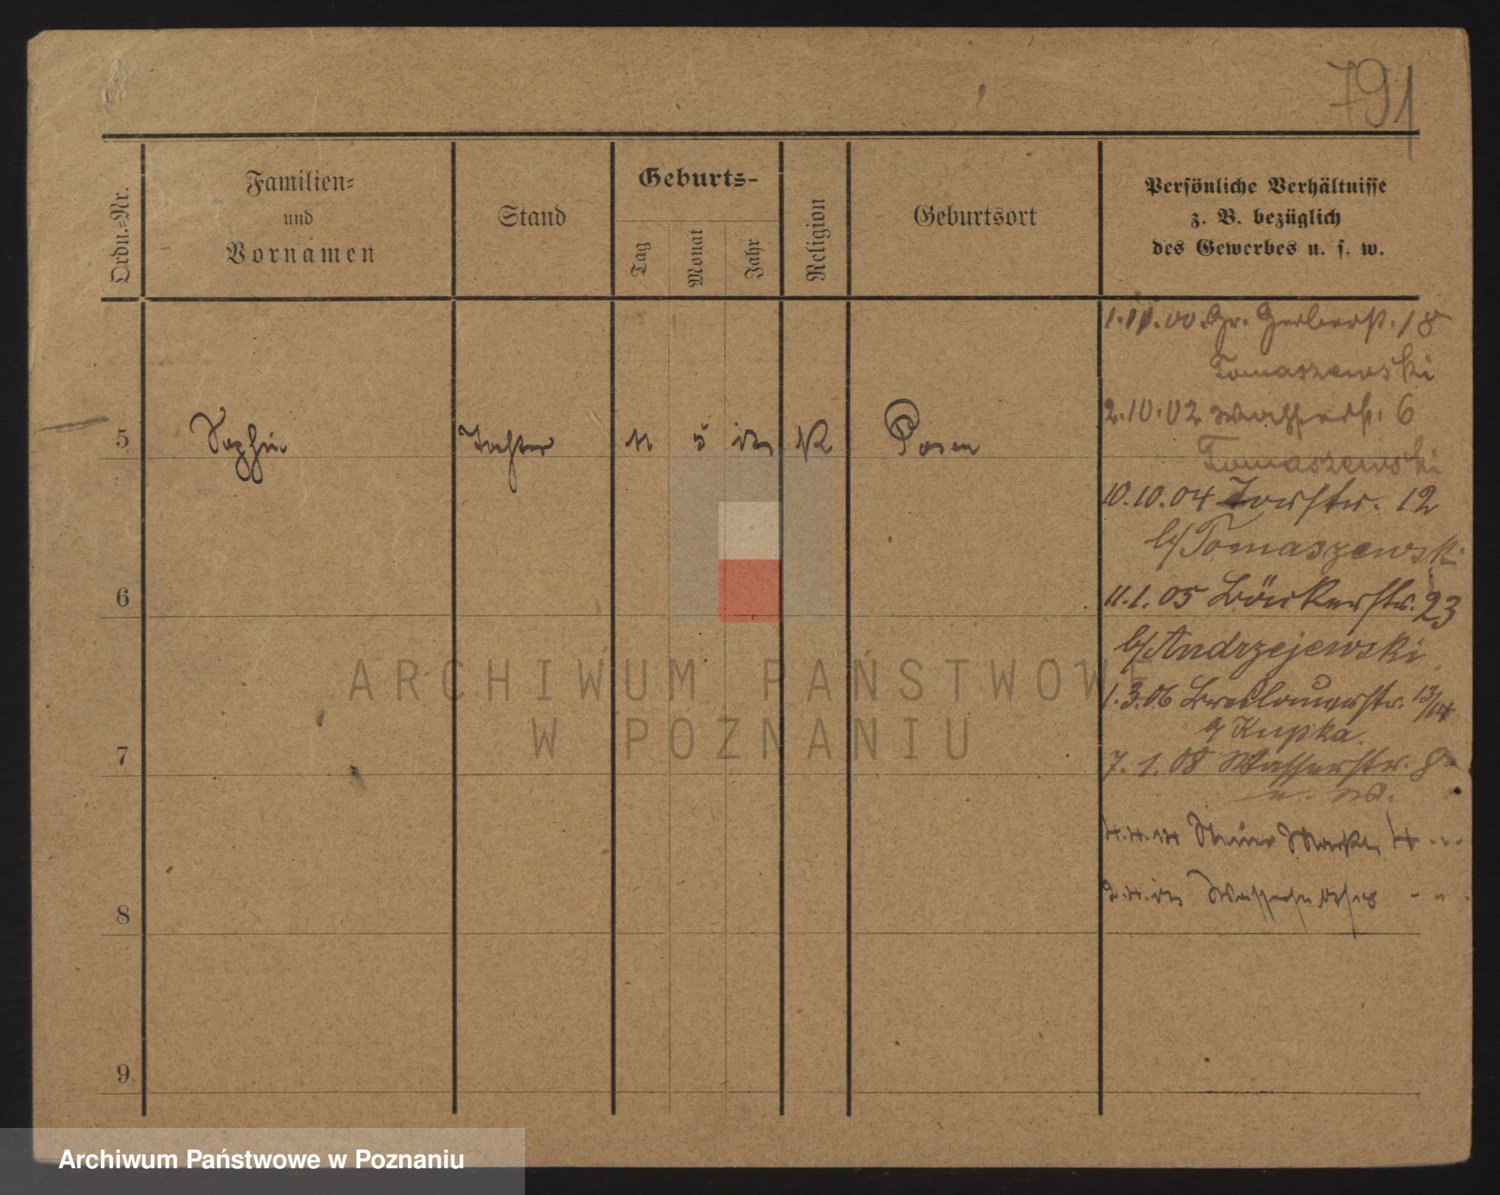 791
Ordn.-Nr.
Familien-
und
Vornamen
Stand
Geburts-
Tag
Monat
Jahr
Religion
Geburtsort
Persönliche Verhältnisse
z. B. bezüglich
des Gewerbes u. s. w.
5 Sophie Tochter 11 5 K Posen
6
7
8
9
1.11.00. Gr. Gerberst. 18
Tomaszewski
2.10.02 Wasserst. 6
Tomaszewski
10.10.04 Torstr. 12
b/Tomaszewski
11.1.05 Bäckerstr. 23
b/Andrzejewski
1.3.06 Breslauerstr. 13/14
Kupka
7.1.08 Wasserstr. 8
4.4.14 Markt 4
ARCHIWUM PAŃSTWOWE
W POZNANIU
Archiwum Państwowe w Poznaniu